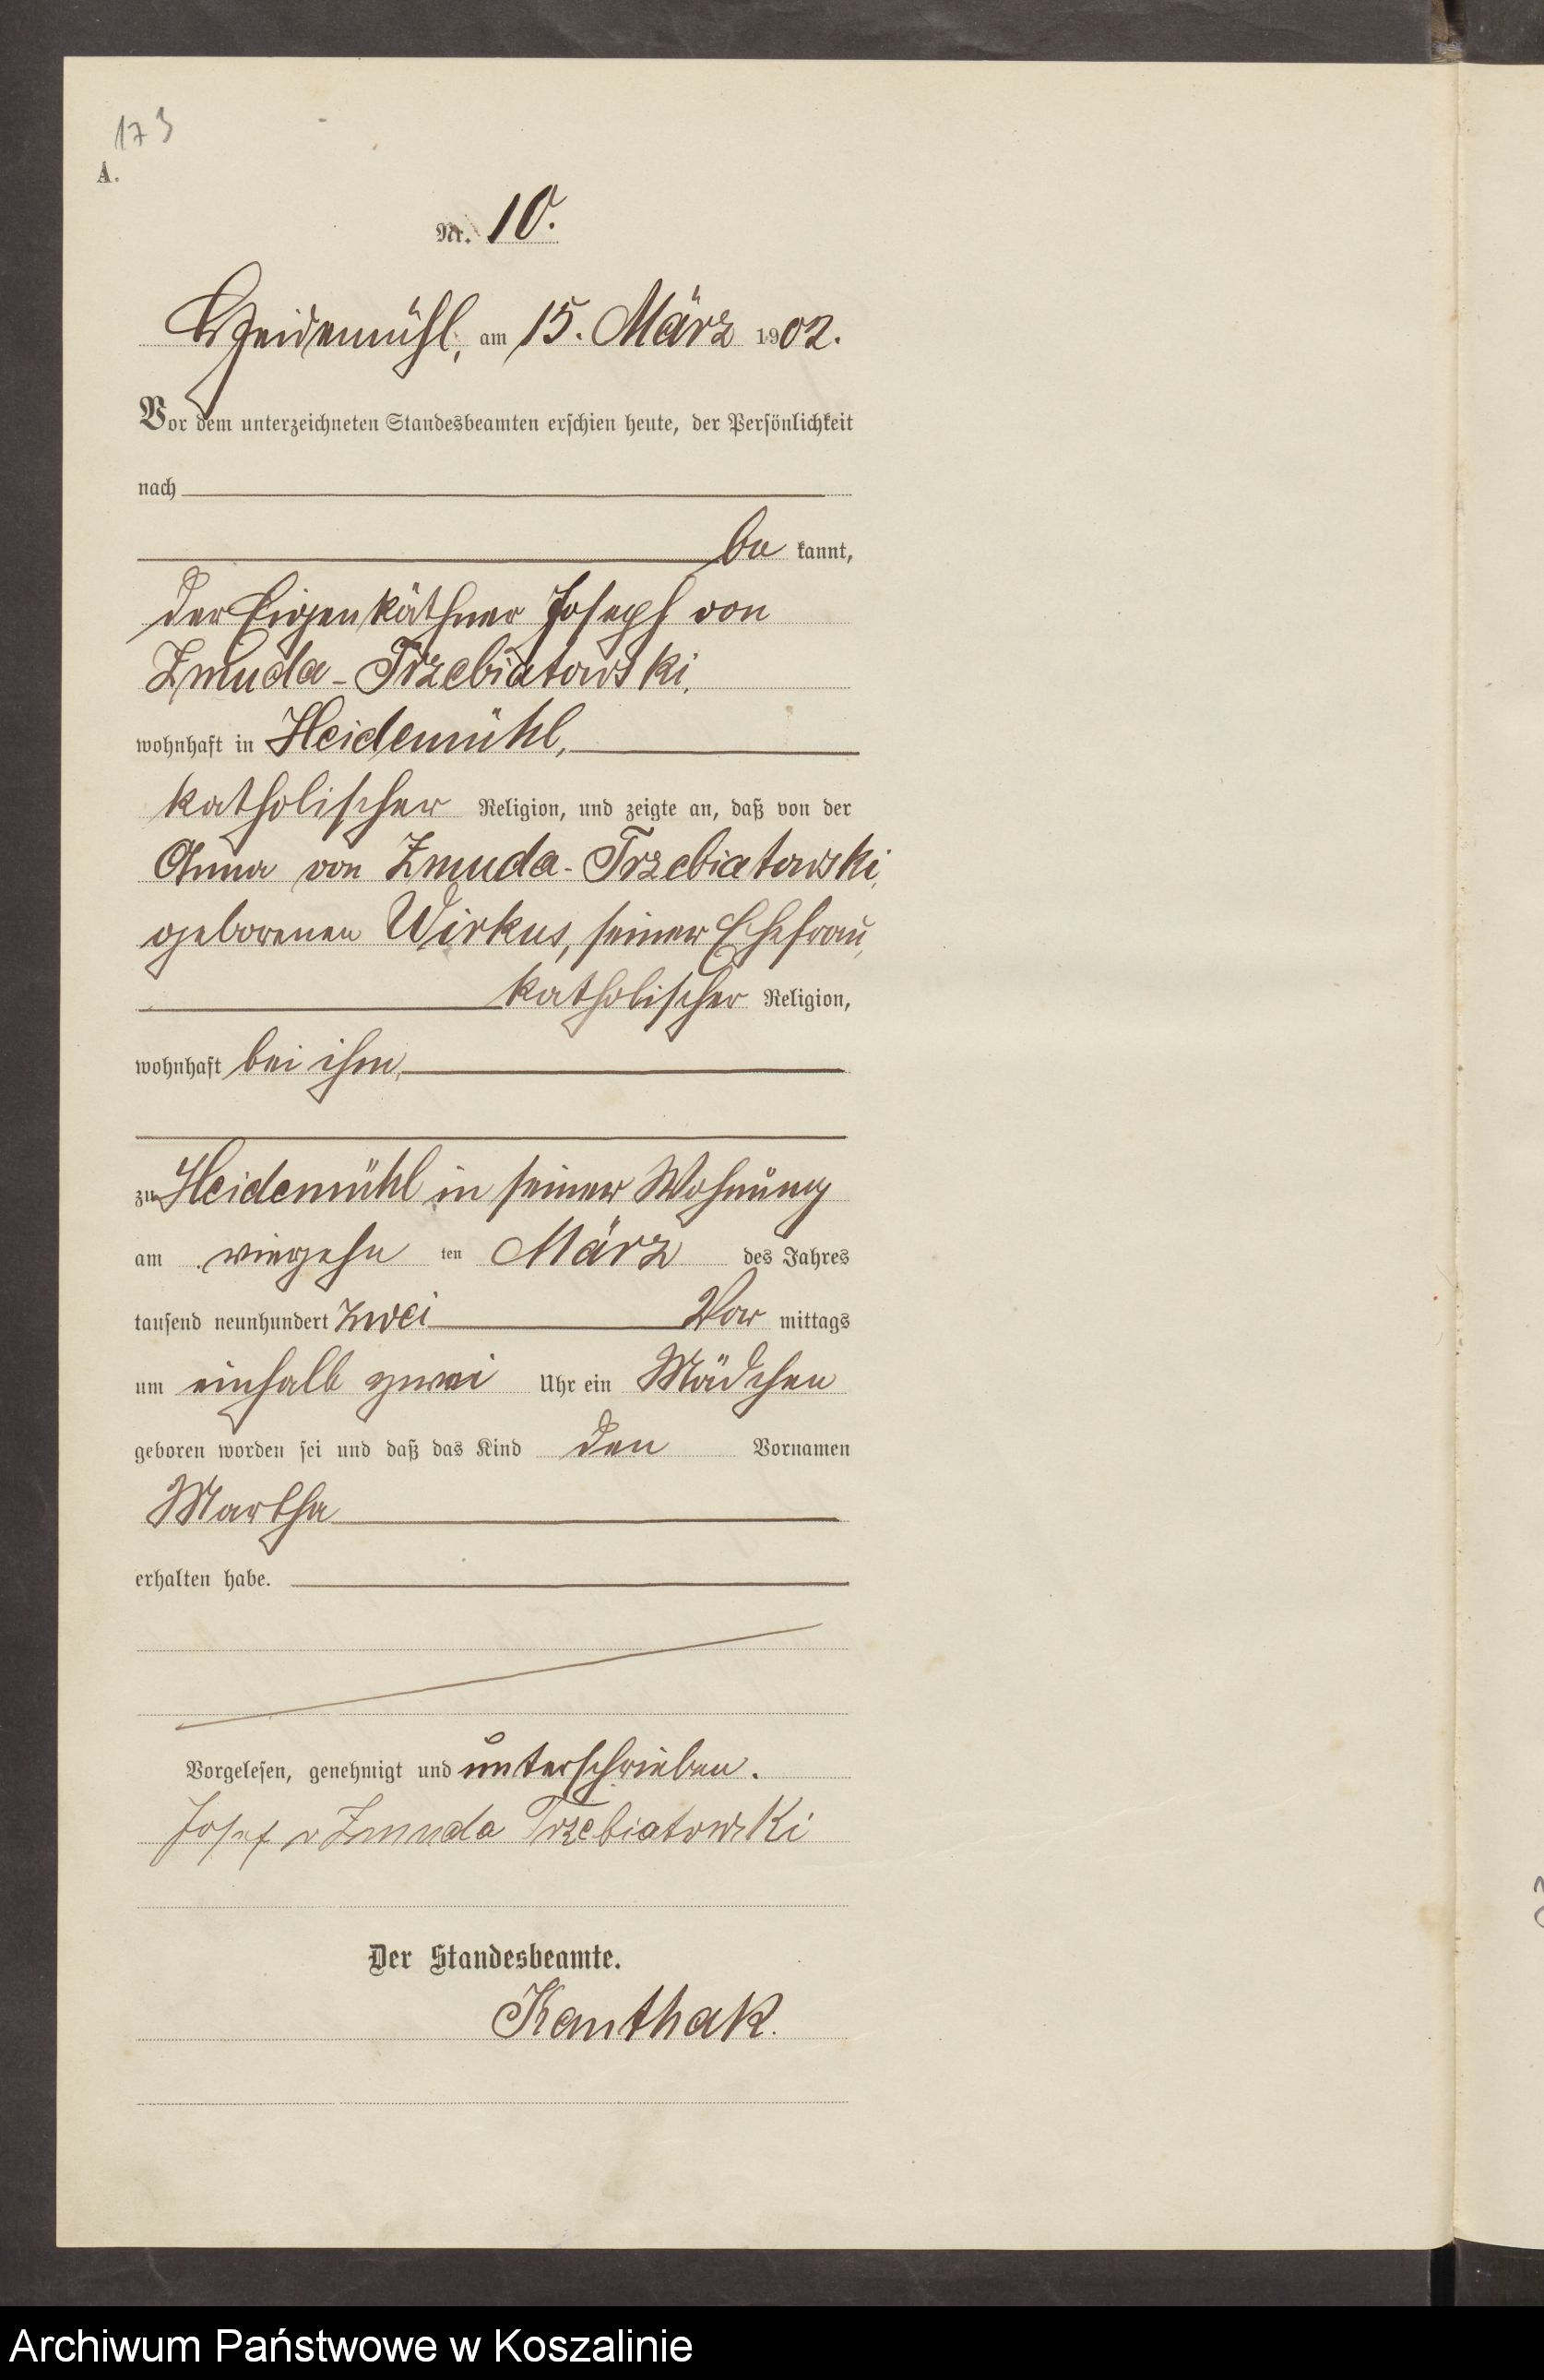 173
A.
Nr. 10.
Heidemühl, am 15. März 1902.
Vor dem unterzeichneten Standesbeamten erschien heute, der Persönlichkeit
nach
be kannt,
der Eigenkäthner Joseph von
Zmuda-Trzebiatowski,
wohnhaft in Heidemühl,
katholischer Religion, und zeigte an, daß von der
Anna von Zmuda-Trzebiatowski,
geborenen Wirkus, seiner Ehefrau,
katholischer Religion,
wohnhaft bei ihm,
zu Heidemühl in seiner Wohnung
am vierzehn ten März des Jahres
tausend neunhundert zwei Vor mittags
um einhalb zwei Uhr ein Mädchen
geboren worden sei und daß das Kind den Vornamen
Martha
erhalten habe.
Vorgelesen, genehmigt und unterschrieben.
Josef v Zmuda Trzebiatowski
Der Standesbeamte.
Kanthak.
Archiwum Państwowe w Koszalinie